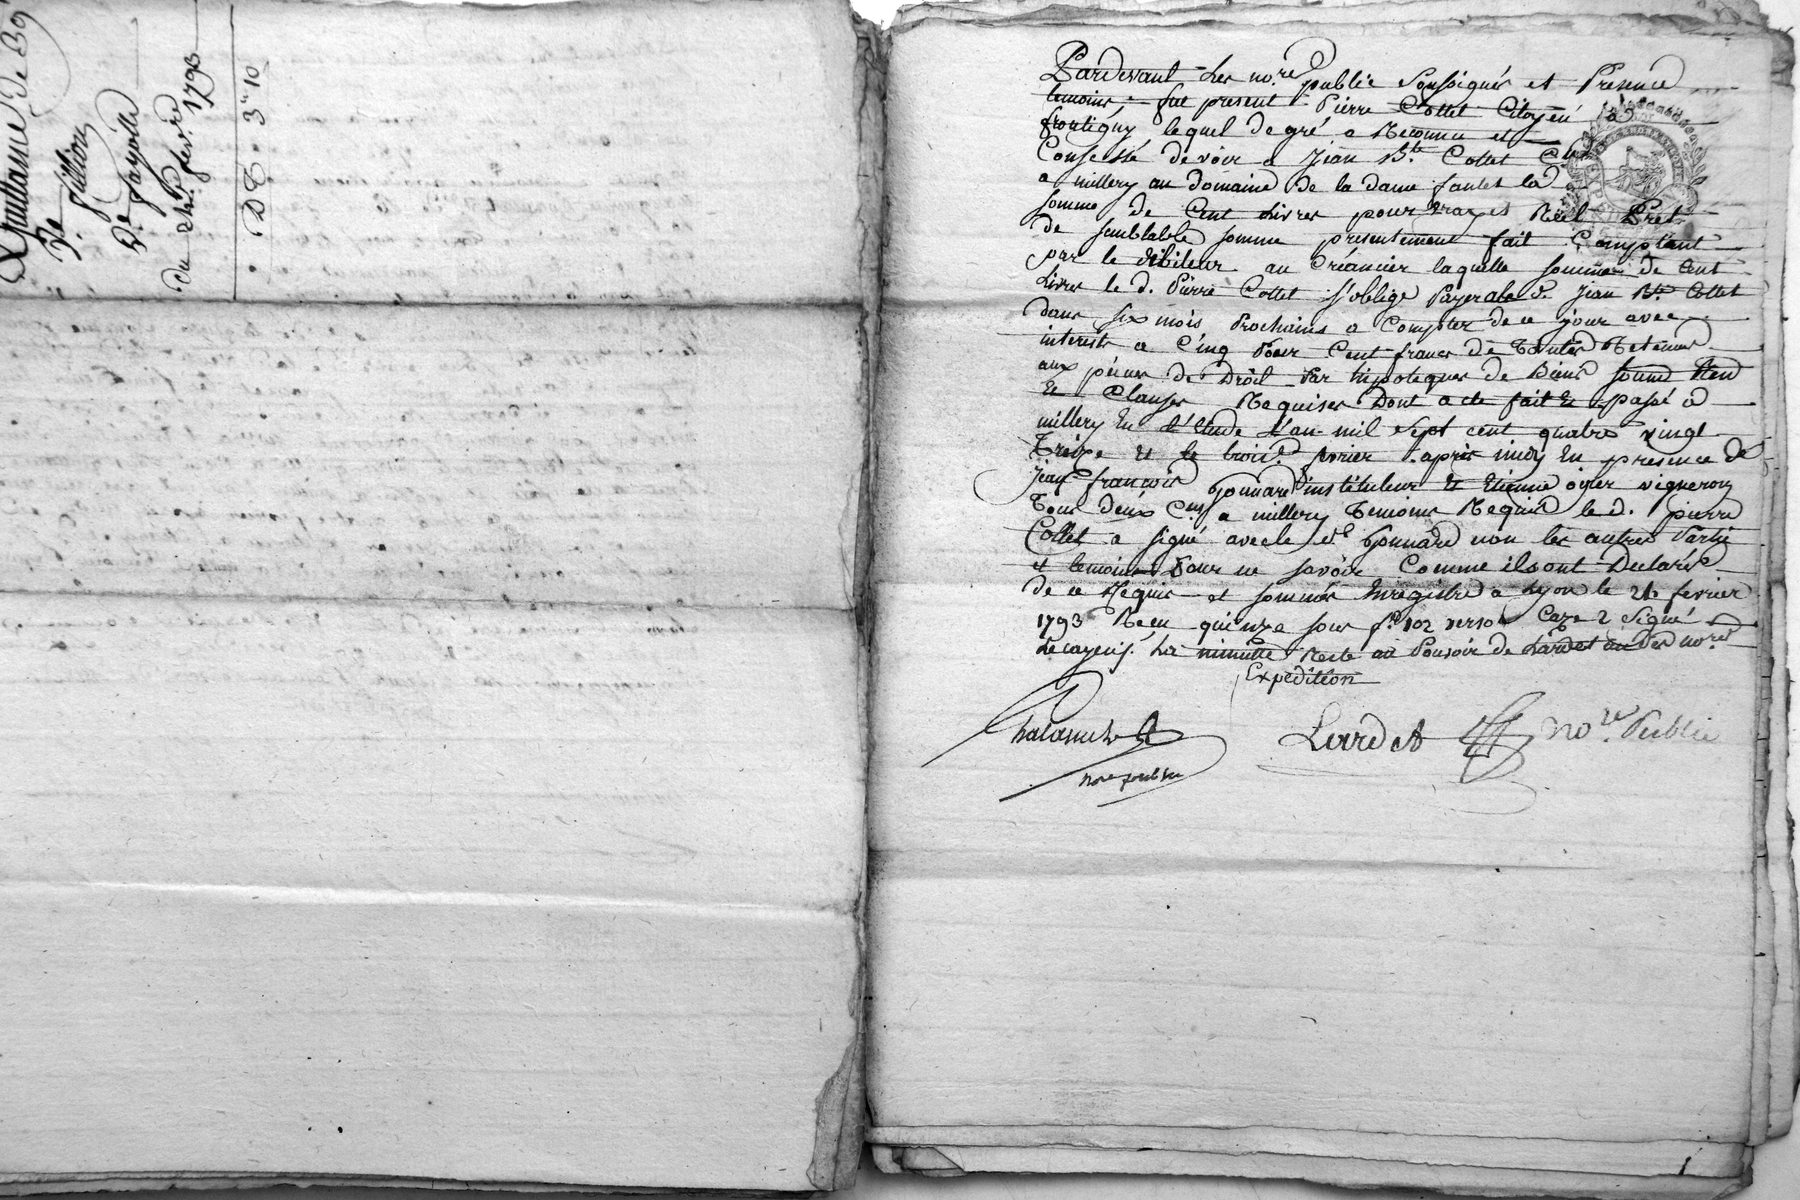 Quittance de 39
De fillion
De fayolle
du 2 fev.rd 1793
D C. 3" 10
Pardevant Les no.res public Soussignés et Presence
temoins, fut present Pierre Collet Citoyen à
frontigny lequel de gré a Reconnu et
Confessé devoir a Jean B.te Collet
a millery au Domaine de la dame fantet la
somme de Cent Livres pour vray et Réel Prest
de semblable somme presentement fait Comptant
par le débiteur au Créancier laquelle somme de Cent
Livres le d. Pierre Collet s'oblige Payer aud. Jean B.te Collet
dans six mois Prochains a Compter de ce jour avec
interests a Cinq Pour Cent francs de Toutes Retenues
aux peines de Droit Par hipoteques de Biens
et Clauses Requises Dont acte fait et passé a
millery En l'Etude L'an mil sept cent quatre vingt
Treize et le trois.e fevrier après midy En presence de
Jean françois Gonnard instituteur et Etienne ogier vigneron
Tous deux C.ns a millery Temoins Requis le d. pierre
Collet a signé avec le d.t Gonnard non les autres Partie
et temoins Pour ne savoir Comme ils ont Declaré
de ce Requis et sommés Enregistré a Lyon le 21 fevrier
1793 Recu quinze sous f.o 102 verso Caze 2 Signé
Lecayeuf. La minutte Reste au Pouvoir de Lardet un des no.res
Expedition
no.re public
Lardet no.re Public
1